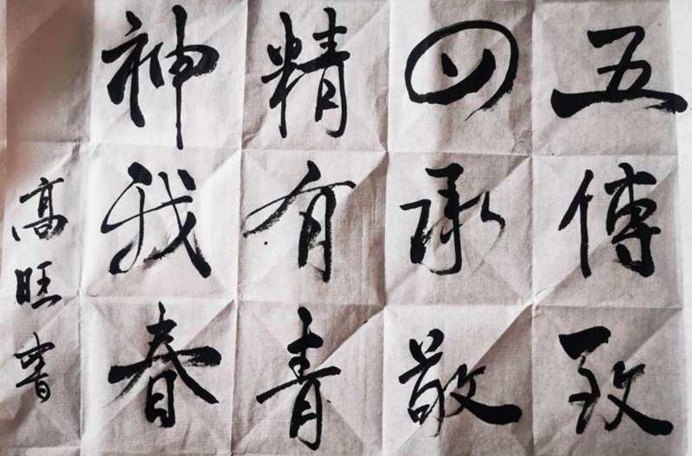 五四精神
傳承有我
致敬青春
高旺書